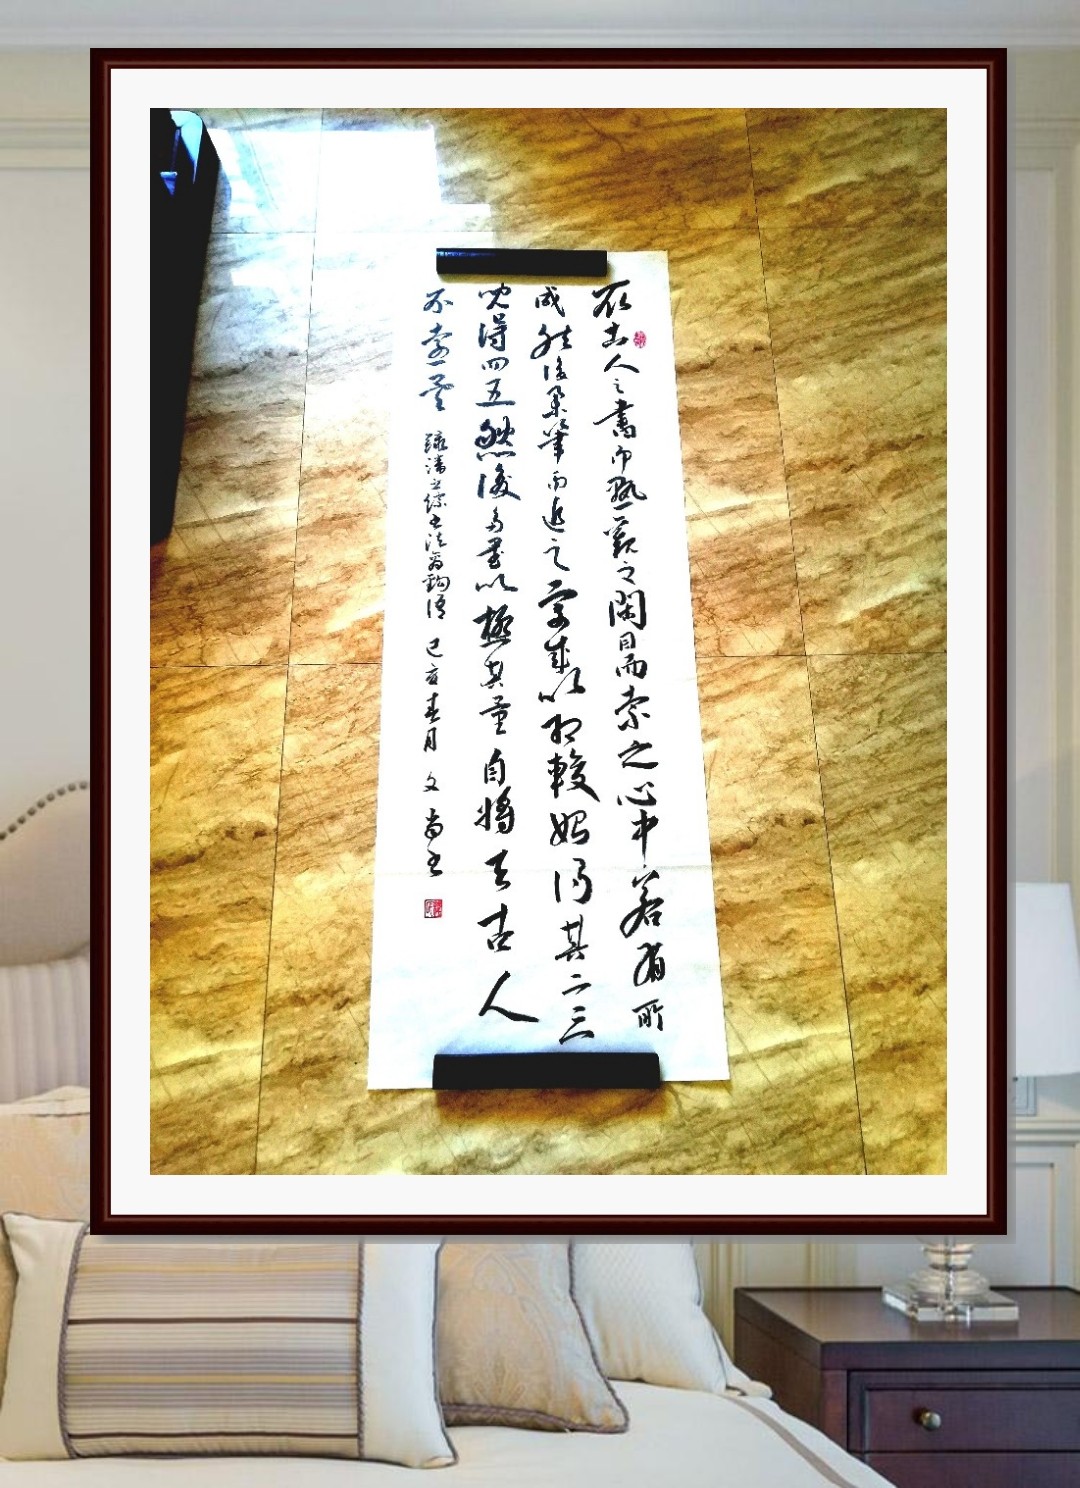 取古人之書而熟觀之閉目而索之心中若有所
成然後舉筆而追之字成以相較始得其二三
既得四五然後多書以極其量自將去古人
不遠矣 錄潘之淙書法離鉤語 己亥春月 文尚